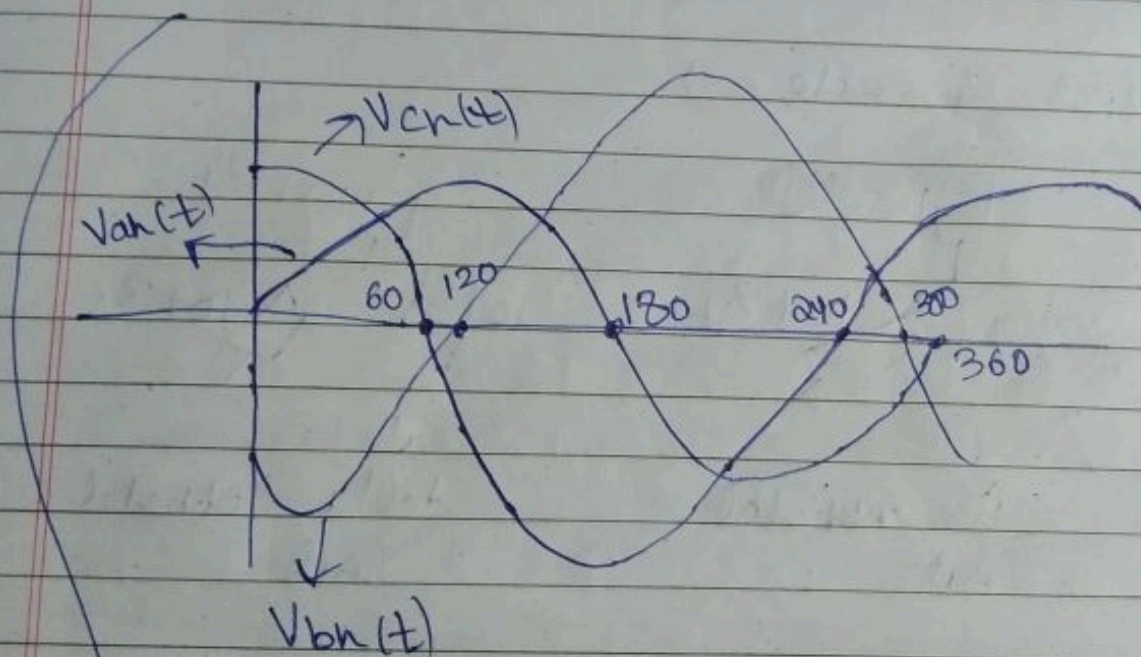 Vcn(t)
Van(t)
60
120
180
240
300
360
Vbn(t)